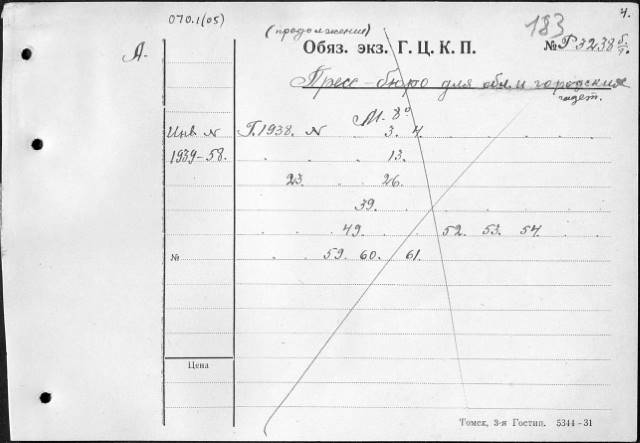 4.
070.1(05)
(продолжение)
183
А.
Обяз. экз. Г. Ц. К. П.
№ Р3238 5/7.
Пресс-бюро для обл. и городских
газет.
М. 8°
Инв. N Г. 1938. N 3. 4.
1939-58. . . . 13.
23. . 26.
39.
49. . . 52. 53. 54.
№ . . 59. 60. 61.
Цена
Томск, 3-я Гостип. 5344-31